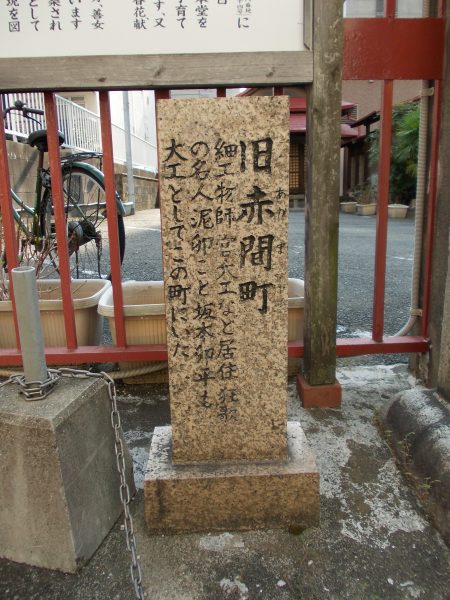 に
子育て
す、又
春花献
、善女
います
され
として
現を図
旧赤間町
あかま
細工物師宮大工など居住狂歌
の名人泥卯こと坂本卯平も
大工としてこの町にいた